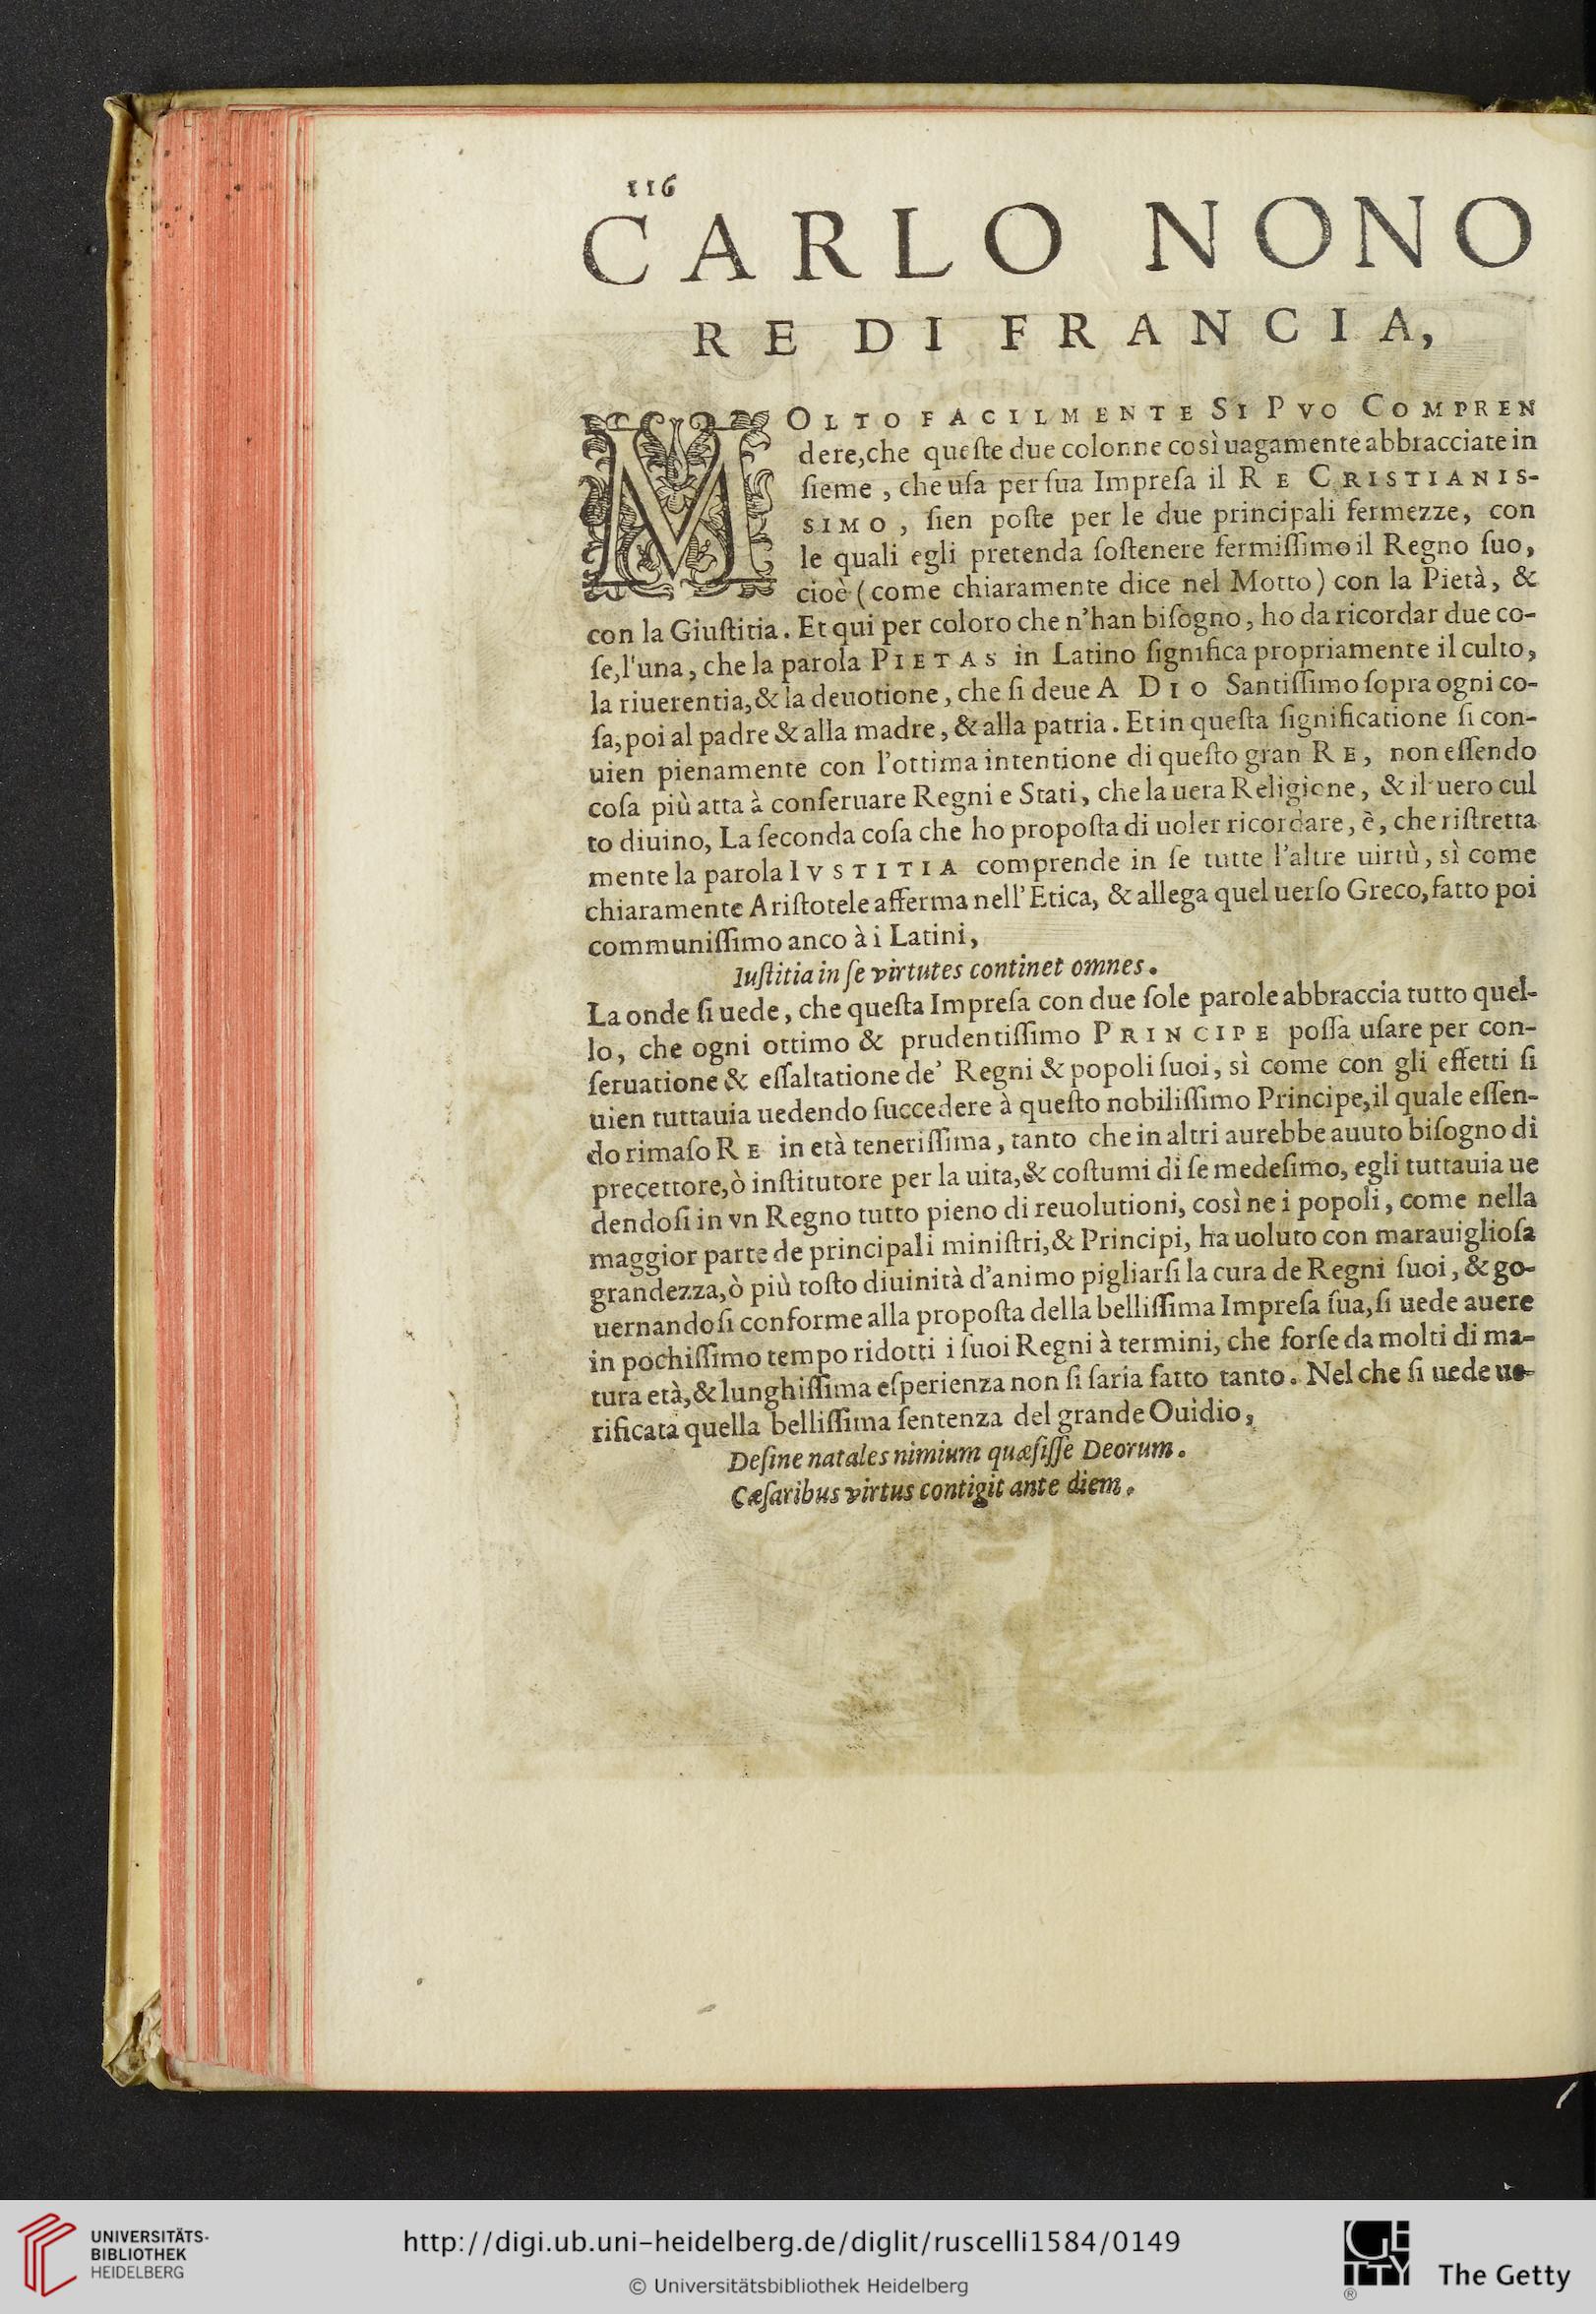 116
CARLO NONO
RE DI FRANCIA,
MOLTO FACILMENTE SI PVO COMPREN
dere,che queſte due colonne così uagamente abbracciate in
ſieme, che uſa per ſua Impreſa il RE CRISTIANIS-
SIMO, ſien poſte per le due principali fermezze, con
le quali egli pretenda ſoſtenere fermiſſimo il Regno ſuo,
cioè (come chiaramente dice nel Motto) con la Pietà, &
con la Giuſtitia. Et qui per coloro che n'han biſogno, ho da ricordar due co-
ſe,l'una, che la parola PIETAS in Latino ſignifica propriamente il culto,
la riuerentia,& la deuotione, che ſi deue A DIO Santiſſimo ſopra ogni co-
ſa,poi al padre & alla madre, & alla patria. Et in queſta ſignificatione ſi con-
uien pienamente con l'ottima intentione di queſto gran RE, non eſſendo
coſa più atta à conſeruare Regni e Stati, che la uera Religione, & il uero cul
to diuino, La ſeconda coſa che ho propoſta di uoler ricordare, è, che riſtretta
mente la parola IVSTITIA comprende in ſe tutte l'altre uirtù, sì come
chiaramente Ariſtotele afferma nell'Etica, & allega quel uerſo Greco,fatto poi
communiſſimo anco à i Latini,
Iuſtitia in ſe virtutes continet omnes.
La onde ſi uede, che queſta Impreſa con due ſole parole abbraccia tutto quel-
lo, che ogni ottimo & prudentiſſimo PRINCIPE poſſa uſare per con-
ſeruatione & eſſaltatione de' Regni & popoli ſuoi, sì come con gli effetti ſi
uien tuttauia uedendo ſuccedere à queſto nobiliſſimo Principe,il quale eſſen-
do rimaſo RE in età teneriſſima, tanto che in altri aurebbe auuto biſogno di
precettore,ò inſtitutore per la uita,& coſtumi di ſe medeſimo, egli tuttauia ue
dendoſi in vn Regno tutto pieno di reuolutioni, così ne i popoli, come nella
maggior parte de principali miniſtri,& Principi, ha uoluto con marauiglioſa
grandezza,ò più toſto diuinità d'animo pigliarſi la cura de Regni ſuoi, & go-
uernandoſi conforme alla propoſta della belliſſima Impreſa ſua,ſi uede auere
in pochiſſimo tempo ridotti i ſuoi Regni à termini, che forſe da molti di ma-
tura età,& lunghiſſima eſperienza non ſi ſaria fatto tanto. Nel che ſi uede ue-
rificata quella belliſſima ſentenza del grande Ouidio,
Deſine natales nimium quæſiſſe Deorum.
Cæſaribus virtus contigit ante diem.
UNIVERSITÄTS-
BIBLIOTHEK
HEIDELBERG
http://digi.ub.uni-heidelberg.de/diglit/ruscelli1584/0149
© Universitätsbibliothek Heidelberg
GETTY
®
The Getty